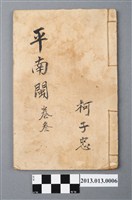 平南閩
卷叁
柯子忠
2013.013.0006